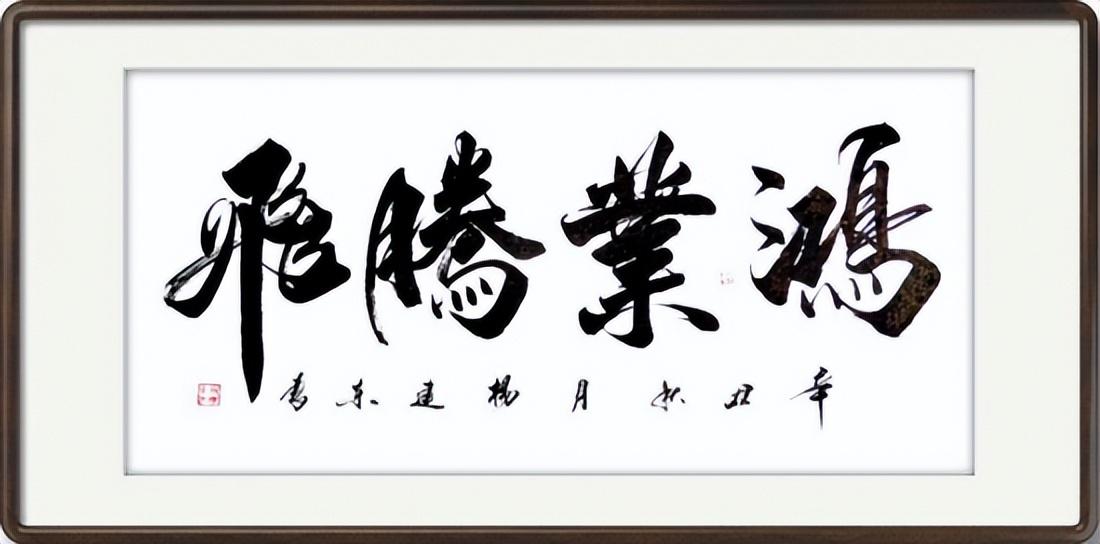 鴻業騰飛
辛丑秋月楊建东書